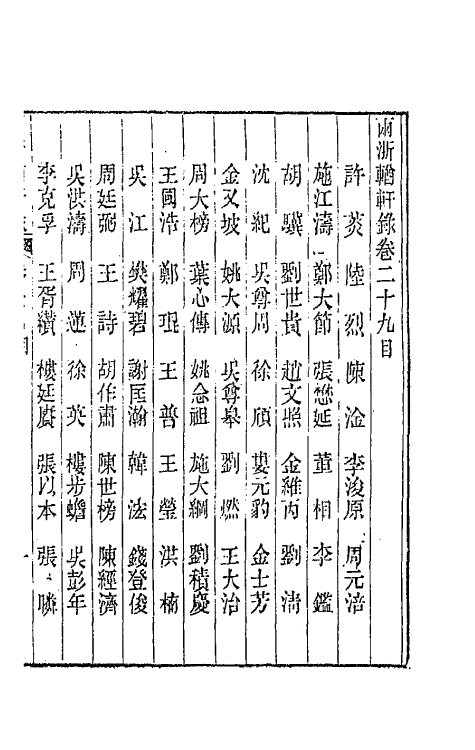 兩浙輶軒錄卷二十九目
許焱 陸烈 陳淦 李浚原 周元涪
施江濤 鄭大節 張懋延 董相 李鑑
胡驥 劉世貴 趙文照 金維丙 劉淸
沈紀 吳尊周 徐頎 婁元豹 金士芳
金又坡 姚大源 吳尊舉 劉燃 王大治
周大榜 葉心傳 姚念祖 施大綱 劉積慶
王國浩 鄭琨 王普 王瑩 洪楠
吳江 樊耀碧 謝匡瀚 韓法 錢登俊
周廷弼 王詩 胡作肅 陳世榜 陳經濟
吳洪濤 周蓮 徐英 樓步蟾 吳彭年
李克孚 王胥績 樓廷賡 張以本 張